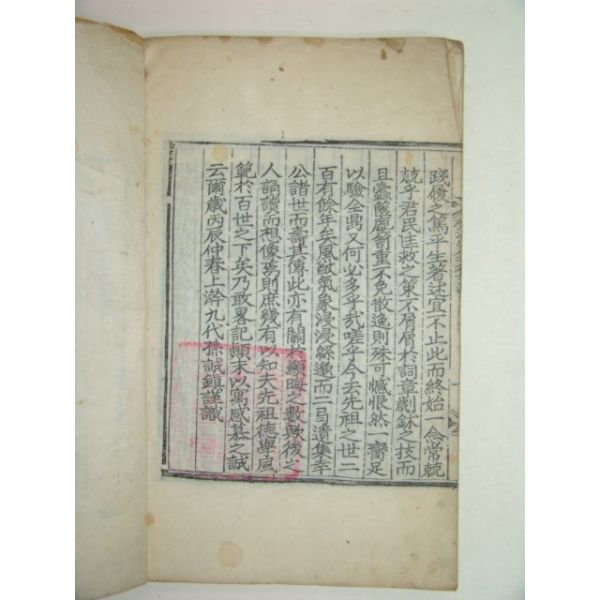 踐履之篤平生著述宜不止此而終始一念常兢
兢乎君民匡救之策不屑屑於詞章劌鉥之技而
且蠹蝕塵曾重不免散逸則殊可慽恨然一臠足
以驗全鼎又何必多乎哉嗟乎今去先祖之世二
百有餘年矣風猷氣象浸浸緜邈而二弓遺集幸
公諸世而壽其傳此亦有關於顯晦之數歟後之
人誦讀而想像焉則庶幾有以知夫先祖德學風
範於百世之下矣乃敢畧記顛末以寓感慕之誠
云爾歲丙辰仲春上澣九代孫誠鎭謹識